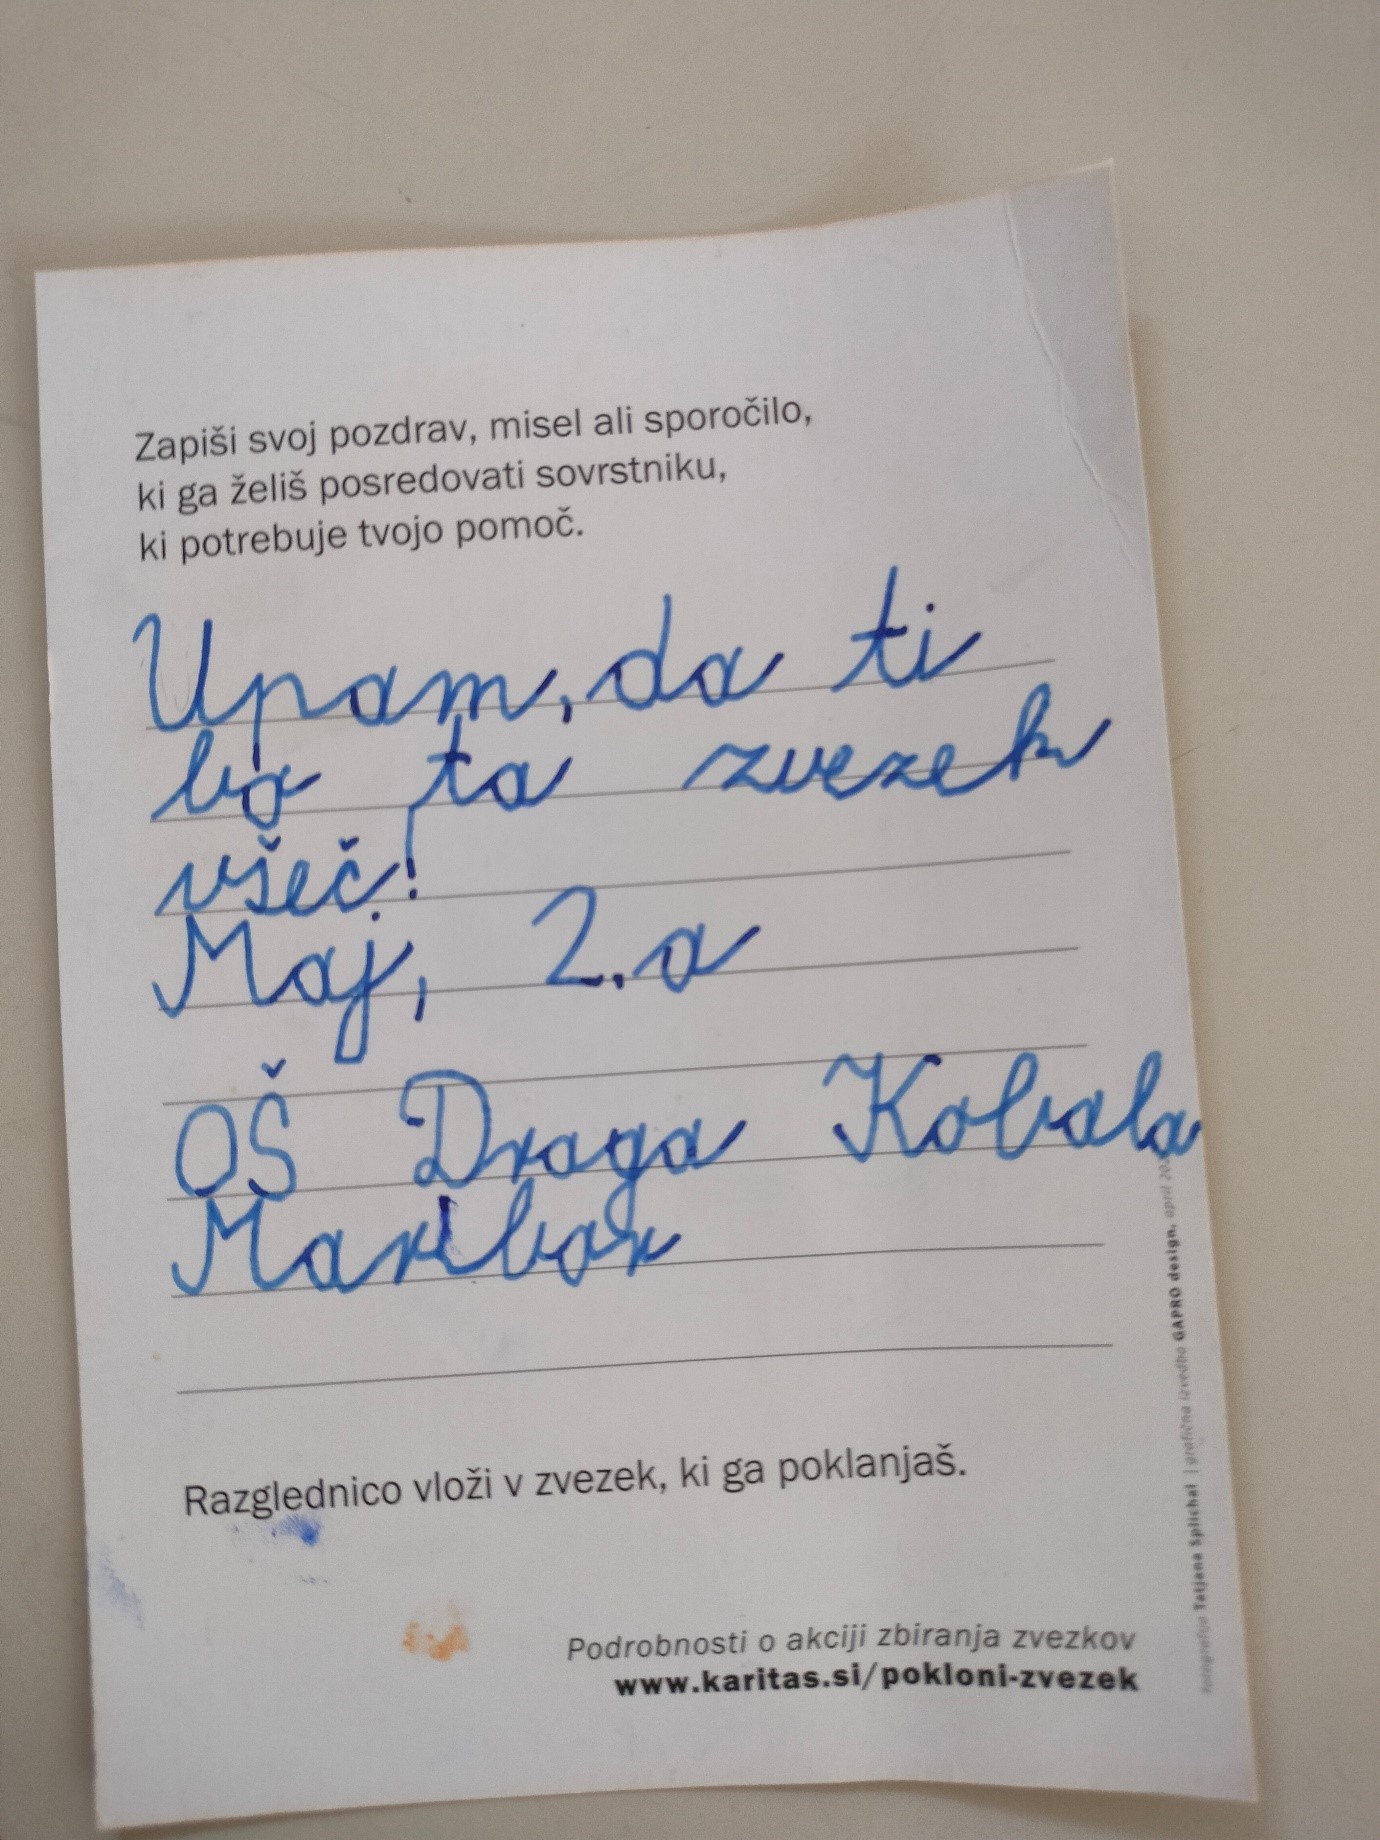 Zapiši svoj pozdrav, misel ali sporočilo,
ki ga želiš posredovati sovrstniku,
ki potrebuje tvojo pomoč.
Upam, da ti
bo ta zvezek
všeč!
Maj, 2.a
OŠ Draga Kobala
Maribor
Razglednico vloži v zvezek, ki ga poklanjaš.
Podrobnosti o akciji zbiranja zvezkov
www.karitas.si/pokloni-zvezek
Fotografija Tatjana Splichal | grafična izvedba GAPRO design, april